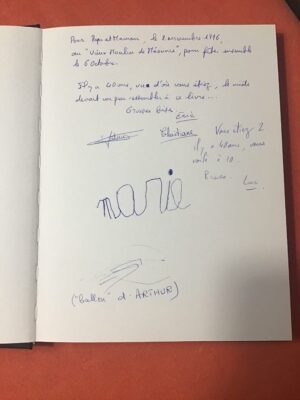 Pour Papa et Maman, le 2 novembre 1996,
au "Vieux Moulin de Mésumes", pour fêter ensemble
le 6 Octobre.
Il y a 40 ans, vu d'où vous étiez, le monde
devait un peu ressembler à ce livre...
Grosses bises
Éric
Christiane
Vous étiez 2
il y a 40 ans, vous
voilà à 10.
Bisous. Luc
marie
("Ballon" d'ARTHUR)